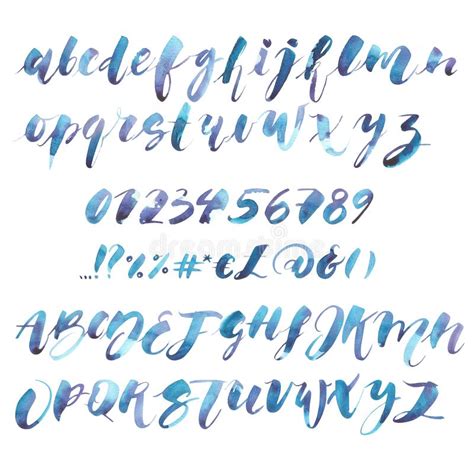 abcdefghijklmn
opqrstuvwxyz
0123456789
...!?%%#*€£@&()
ABCDEFGHIJKMN
OPQRSTUVWXYZ